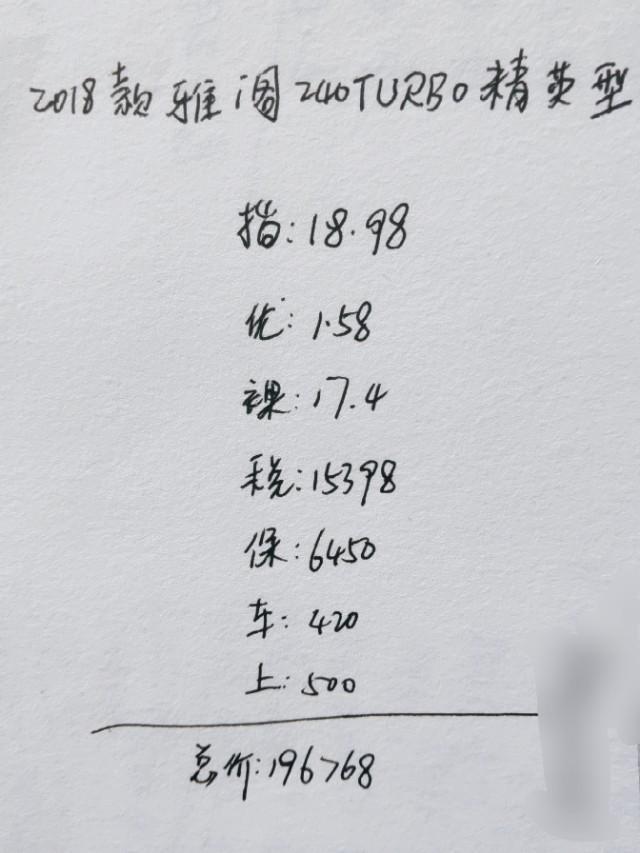 2018款雅阁240TURBO精英型
指:18.98
优:1.58
裸:17.4
税:15398
保:6450
车:420
上:500
总价:196768